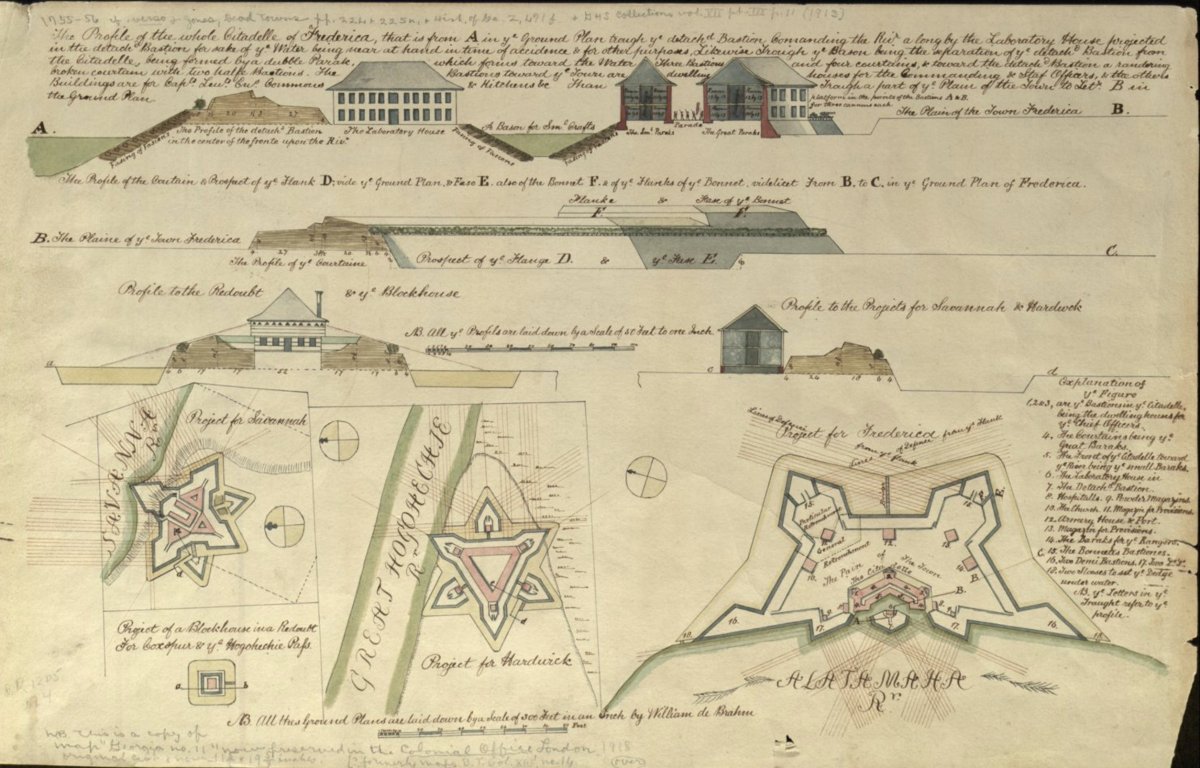 1755-56 verso & Jones, Dead Towns pp. 224 & 225n, & Hist. of Ga. 2, 491f & GHS Collections vol. VII pt. III p. 11 (1913)
The Profile of the whole Citadelle of Frederica, that is from A in yᵉ Ground Plan trough yᵉ detachᵈ Bastion Comanding the Rivʳ a long by the Laboratory House projected
in the detachᵈ Bastion for sake of yᵉ Water being near at hand in time of accidence & for other purposes. Likewise trough yᵉ Bason being the separation of yᵉ detachᵈ Bastion from
the Citadelle, being formed by a dubble Parak, which forms toward the Water Three Bastions and four courtains, & toward the detachᵗ Bastion a randering
broken courtain with two halfe Bastions. The Bastions toward yᵉ Town are dwelling houses for the Commanding & Staf Officers, & the others
Buildings are for Capᵗ Leuᵗ Ensᵗ Commons & Kitchens &c Than Trough a part of yᵉ Plain of the Town to Letʳ B in
the Ground Plan
platform in the points of the Bastions A & B.
for three cannons each
The Plain of the Town Frederica B.
A.
The Profile of the detachᵗ Bastion
in the center of the fronte upon the Rivʳ
The Laboratory House
A Bason for Smˡ Crafts
The Smˡ Paraks
Parade
The Great Paraks
Fading of Fascens
Fading of Fascens
Fading of Fascens
The Profile of the Courtain & Prospect of yᵉ Flank D. vide yᵉ Ground Plan, & Fase E. also of the Bonnet F. & of yᵉ Flanks of yᵉ Bonnet, videlicet From B. to C. in yᵉ Ground Plan of Frederica.
Flanke & Fase of yᵉ Bonnet
F. F.
B. The Plaine of yᵉ Town Frederica
The Profile of yᵉ Courtaine
Prospect of yᵉ Flange D. & yᵉ Fase E.
C.
Profile to the Redoubt & yᵉ Blockhouse
Profile to the Projects for Savannah & Hardwek
NB. All yᵉ Profils are laid down by a Scale of 50 Feet to one Inch
a
c
d
Project for Savannah
SAVANNAH
Rivʳ
GREAT HOGOHECHIE
Rʳ
Project for Hardwick
Project of a Blockhouse in a Redoubt
For Coxspur & yᵉ Hogohechie Pass.
a
Lines of Defence from yᵉ Flank
Project for Frederica
Particular Retrenchment
General Retrenchment
The Plain of the Town
The Citadelle
B.
A
C
ALATAMAHA
Rʳ
Explanation of
yᵉ Figure
1, 2 & 3, are yᵉ Bastions in yᵉ Citadelle,
being the dwelling houses for
yᵉ Chief Officers.
4, The Courtains being yᵉ
Great Baraks.
5. The Front of yᵉ Citadelle toward
yᵉ River being yᵉ small Baraks.
6. The Laboratory House in
7. The Detachᵗ Bastion.
8. Hospitalls. 9. Powder Magazins
10. The Church. 11. Magazin for Provisions.
12. Armery House & Fort.
13. Magazin for Provisions.
14. The Baraks for yᵉ Rangers.
15. The Bonnetts Bastiones.
16. Two Demi Bastions. 17. Two
18. Two Slooses to set yᵉ Dedge
under water.
NB. yᵉ Letters in yᵉ
Fraught refer to yᵉ
profile.
NB All thes Ground Plans are laid down by a Scale of 300 Feet in an Inch by William de Brahm
Feet
NB This is a copy of
map "Georgia no. 11" now preserved in the Colonial Office London 1918
(over)